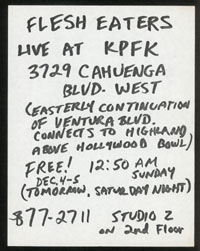 FLESH EATERS
LIVE AT KPFK
3729 CAHUENGA
BLVD. WEST
(EASTERLY CONTINUATION
OF VENTURA BLVD.
CONNECTS TO HIGHLAND
ABOVE HOLLYWOOD BOWL)
FREE! 12:50 AM
DEC. 4-5 SUNDAY
(TOMORROW, SATURDAY NIGHT)
877-2711 STUDIO Z
on 2nd Floor